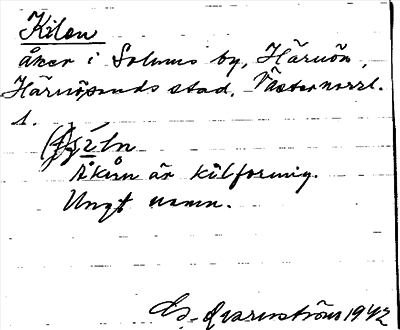 Kilen
åker i Solums by, Härnön,
Härnösands stad. Västernorrl.
1.
Åkern är kilformig.
Ungt namn.
Qvarnström 1942